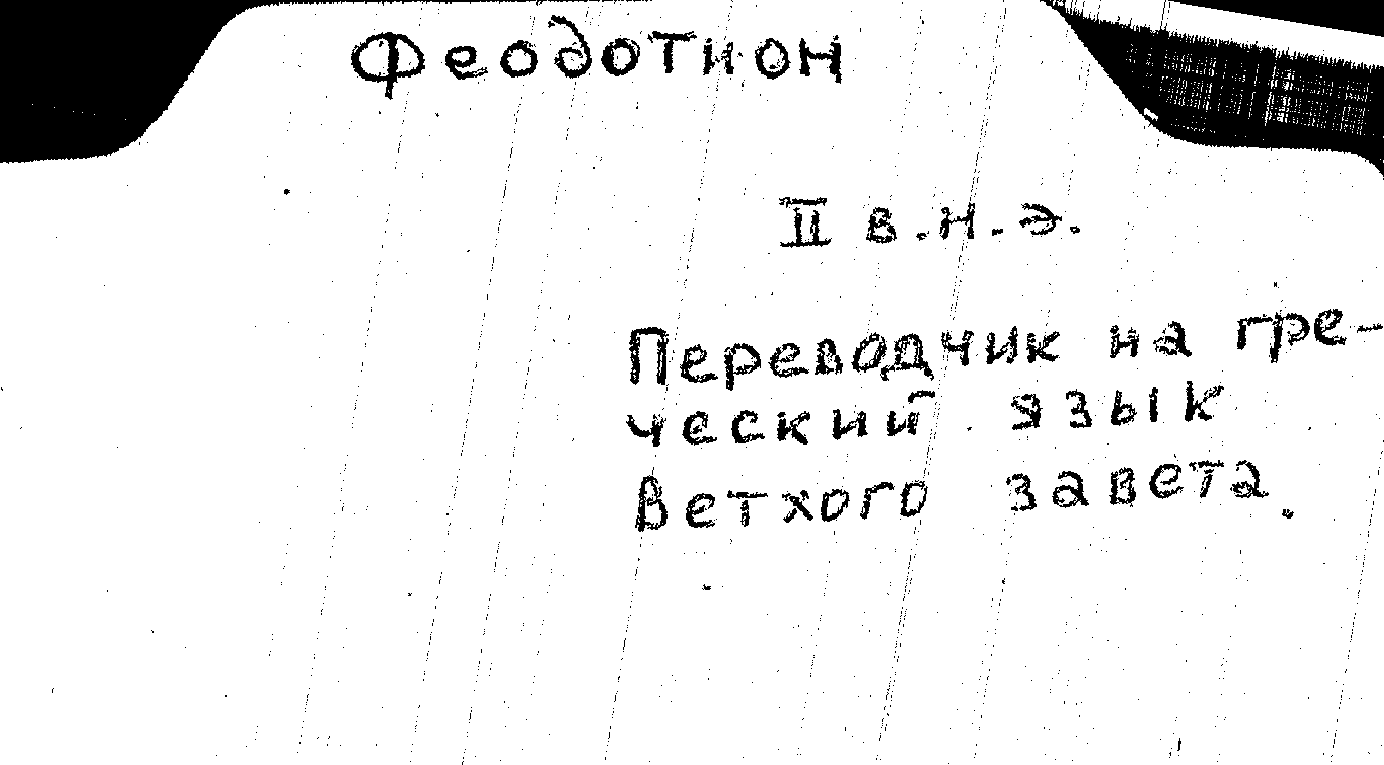 Феодотион
II в.н.э.
Переводчик на гре-
ческий язык
Ветхого завета.